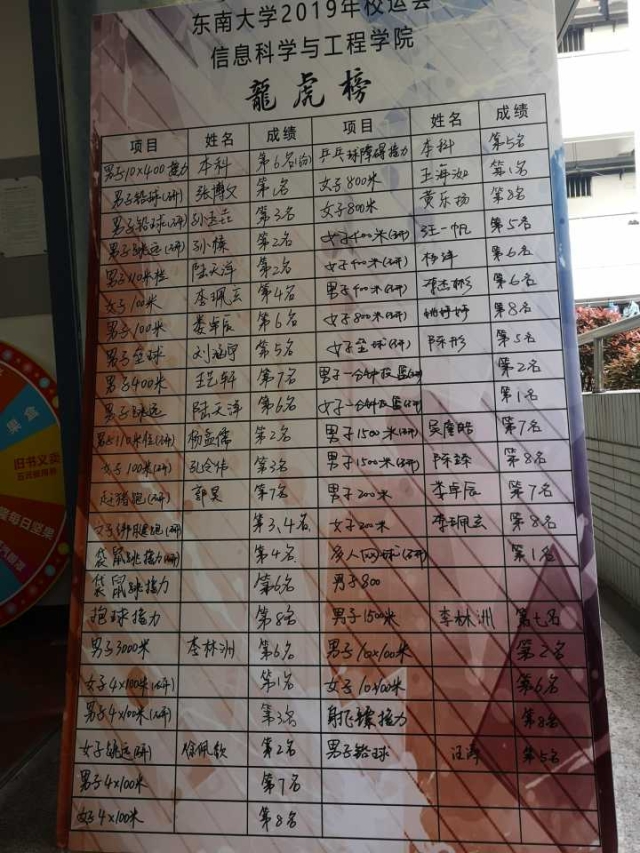 东南大学2019年校运会
信息科学与工程学院
龍虎榜
项目 姓名 成绩 项目 姓名 成绩
男子10×400接力 本科 第6名 乒乓球障碍接力 本科 第5名
男子铅球(研) 张博文 第1名 女子800米 王海汝 第1名
男子铅球(研) 第3名 女子800米 黄乐扬 第8名
男子跳远(研) 孙愫 第2名 女子400米(研) 汪一帆 第5名
男子110米栏 陆天泽 第2名 女子400米(研) 杨洋 第6名
女子100米 李珮玄 第4名 男子400米(研) 第6名
男子100米 娄卓辰 第6名 女子800米(研) 姚婷婷 第8名
男子垒球 刘涵宇 第5名 女子垒球(研) 陈彤 第5名
男子400米 王艺轩 第7名 男子一分钟投篮 第2名
男子跳远 陆天泽 第6名 女子一分钟投篮 第1名
男子110米栏(研) 杨孟儒 第2名 男子1500米(研) 吴康皓 第7名
女子100米(研) 孔令伟 第3名 男子1500米(研) 陈臻 第8名
赶猪跑(研) 郭昊 第7名 男子200米 娄卓辰 第7名
第3、4名 女子200米 李珮玄 第8名
袋鼠跳接力(研) 第4名 多人网球(研) 第1名
袋鼠跳接力 第6名 男子800
抱球接力 第8名 男子1500米 李林洲 第七名
男子3000米 李林洲 第6名 男子10×100米 第2名
女子4×100米(研) 第1名 女子10×100米 第6名
男子4×100米(研) 第3名 接力 第8名
女子跳远(研) 徐佩钦 第2名 男子铅球 汪涛 第5名
男子4×100米 第7名
女子4×100米 第8名
果盒
旧书义卖